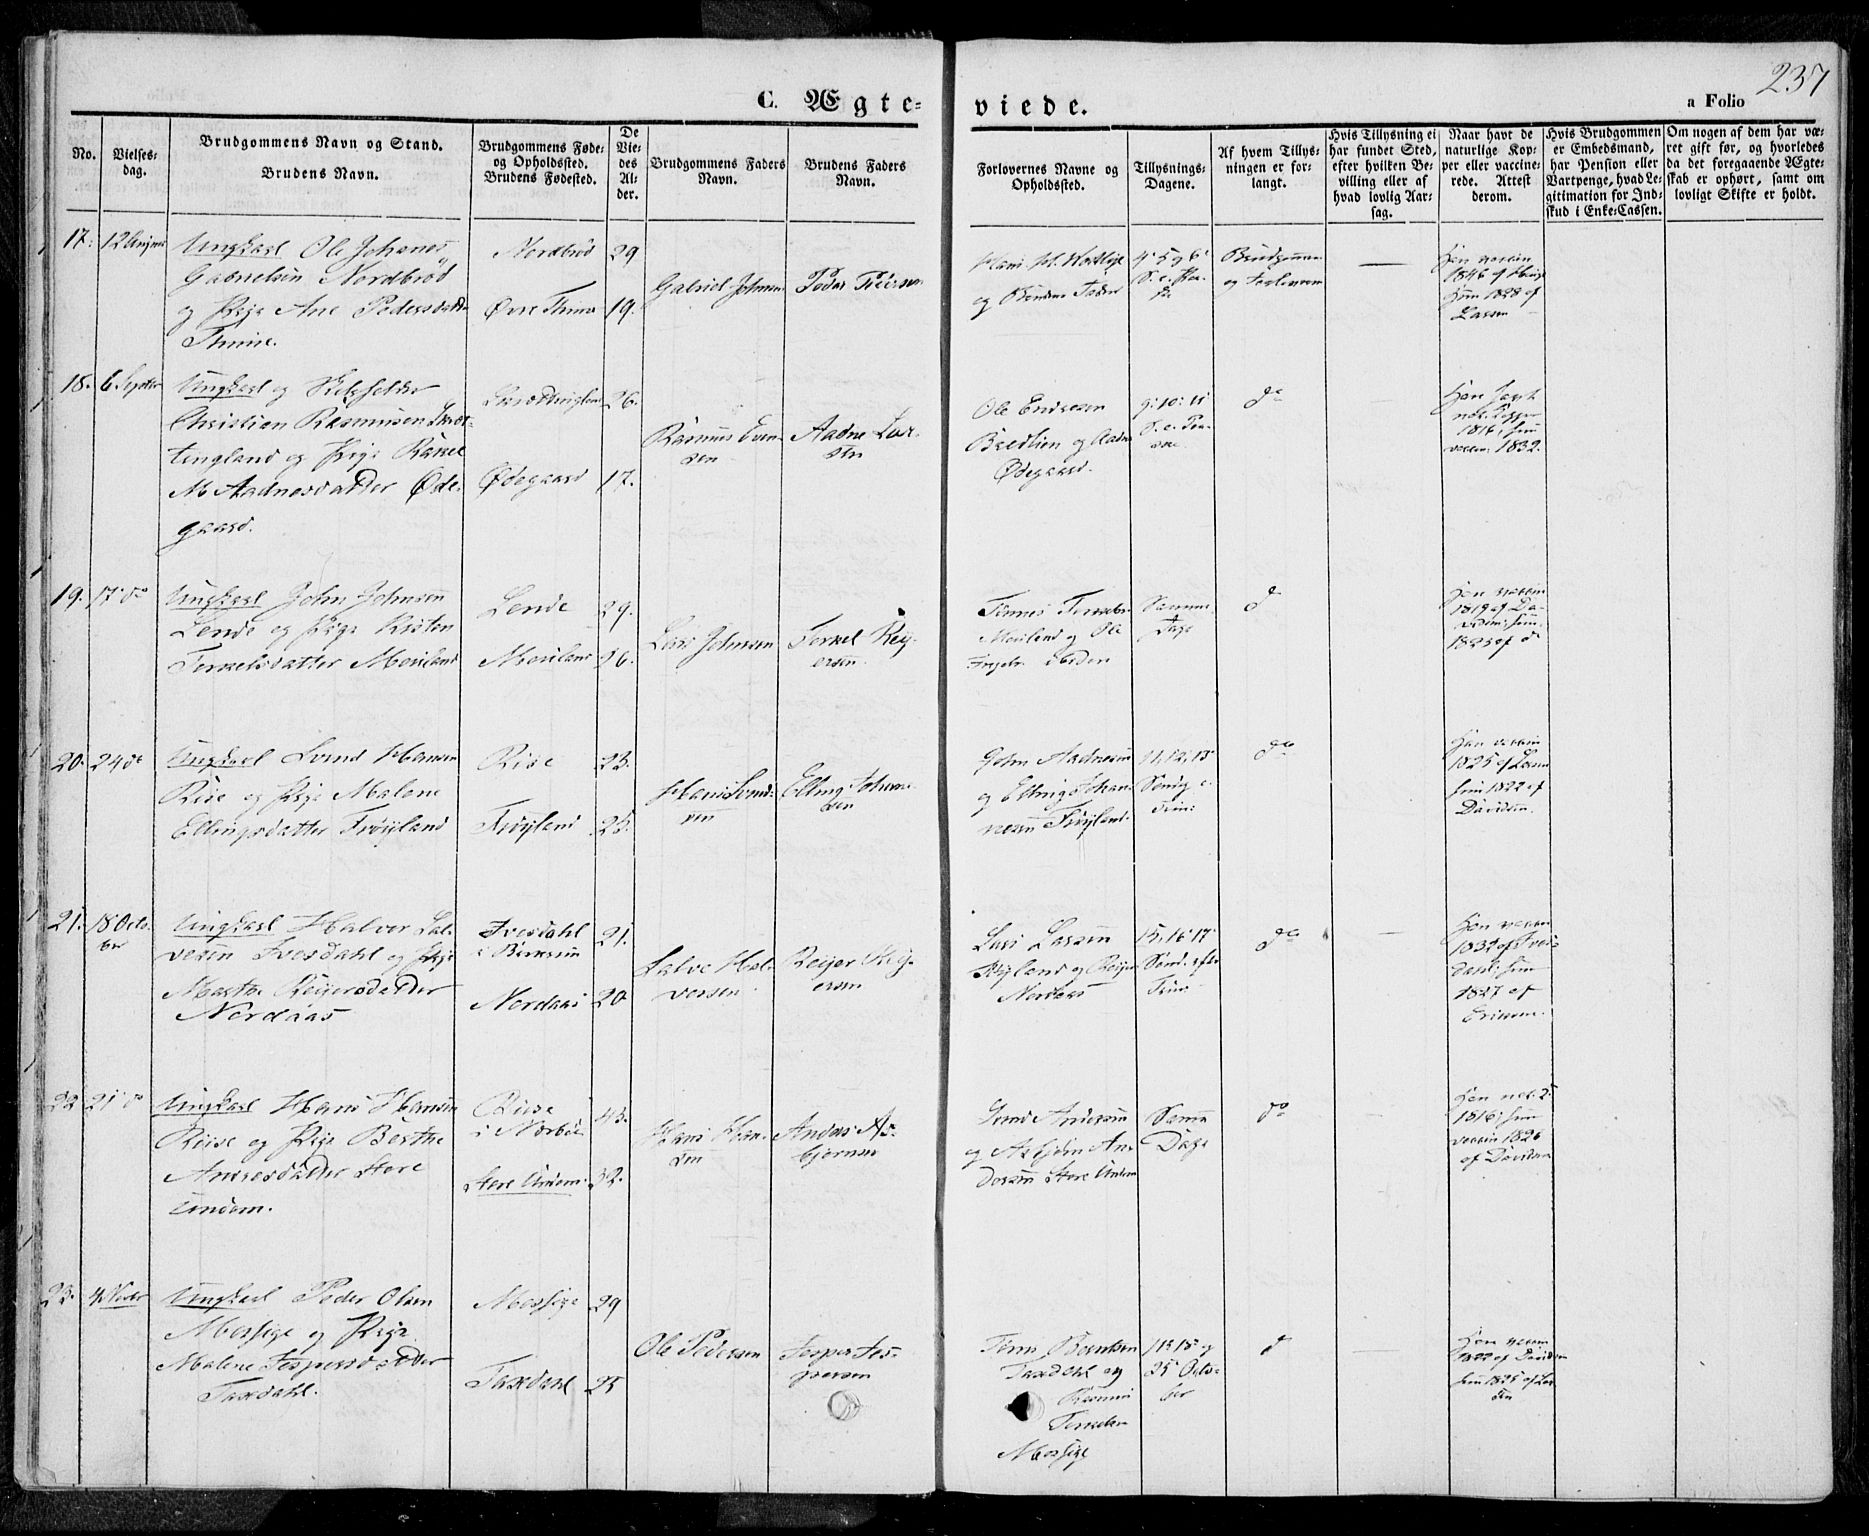 237
C. Ægte-
viede.
a Folio
No.
Vielses-
dag.
Brudgommens Navn og Stand.
Brudens Navn.
Brudgommens Føde-
og Opholdssted.
Brudens Fødested.
De
Vie-
des
Al-
der.
Brudgommens Faders
Navn.
Brudens Faders
Navn.
Forlovernes Navne og
Opholdssted.
Tillysnings-
Dagene.
Af hvem Tillys-
ningen er for-
langt.
Hvis Tillysning ei
har fundet Sted,
efter hvilken Be-
villing eller af
hvad lovlig Aar-
sag.
Naar havt de
naturlige Kop-
per eller vaccine-
rede. Attest
derom.
Hvis Brudgommen
er Embedsmand,
har Pension eller
Vartpenge, hvad Le-
gitimation for Ind-
skud i Enke-Cassen.
Om nogen af dem har væ-
ret gift før, og hvorledes
da det foregaaende Ægte-
skab er ophørt, samt om
lovligt Skifte er holdt.
17.
Ungkarl Ole Johanes
Gabrielsen Nordbrød
og Pige Ane Pedersdatter
Thime.
Nordbrød
Øvre Thime
29
19.
Gabriel Johnsen
Peder
og Brudens Fader
4. 5 og 6
Brudgommen
og Forloveren
1828 af
Larsen
18.
6 Septbr
Ungkarl og
Christian Rasmusen
og Pige Rakel
M Aadnesdatter Øde-
gaard.
Ødegaard
26.
17.
Rasmus Even-
sen
Aadne Lar-
sen
Ole Endresen
Bredlien og Aadne
Ødegaard.
9. 10. 11
do
1816, hun
vaccin. 1832.
19.
17 do
Ungkarl John Johnsen
Lende og Pige Kisten
Terkelsdatter Mæland
Lende
29.
26.
Johnsen
Terkel Rei-
ersen
og Ole
Samme
Dage
do
1819 af Da-
vidsen, hun
1825 af do
20.
24 do
Ungkarl Svend Hansen
Rise og Pige Malene
Ellingsdatter Frøyland
Rise
Frøyland
23.
25.
Hans Svend-
sen
Elling Johane-
sen
John Aadnesen
og Elling Johan-
nesen Frøyland.
11, 12, 13
Søndg e.
Trini:
do
Han vaccin
1825 af Larsen
hun 1822 af
Davidsen.
21.
18 Octo-
ber
Ungkarl Halvor Sal-
vesen Ivesdahl og Pige
Marthe Reiersdatter
Nordaas
Ivesdahl
i Birkrem
Nordaas
21.
20
Salve Hal-
vorsen
Reier Rei-
ersen
Lars Larsen
og Reier
Nordaas
15. 16. 17
Sønd. efter
Trin.
do
1827 af
22
21 do
Ungkarl Hans Hansen
Riise og Pige Berthe
Andersdatter Store
Undem.
Riise
i Nærbø
Store Undem.
43.
32.
Hans Han-
sen
Anders As-
bjørnsen
Svend Andersen
og Asbjørn An-
dersen Store Undem
Samme
Dage
do
1816, hun
vaccin 1826
af Davidsen
23.
4 Novbr
Ungkarl Peder Olsen
Mossige og Pige
Malene Jespersdatter
Taxdahl.
Mossige
Taxdahl
29
25
Ole Pedersen
Jesper Jes-
persen
Berntsen
Taxdahl og
Rasmus
Terkelsen
Mossige
11 18 og
25 Octo-
ber
do
1822 af Davidsen
hun 1825 af Lar-
sen